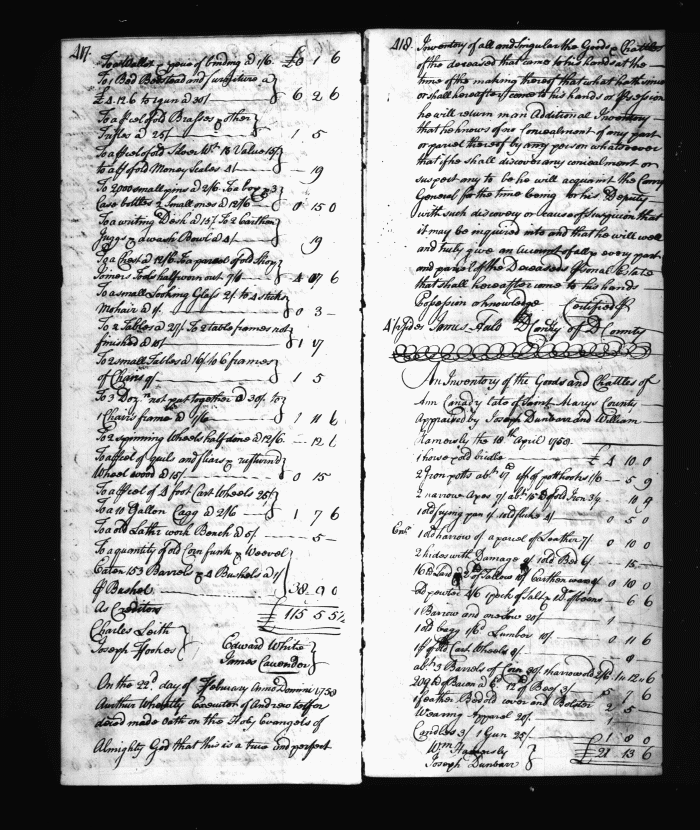 417.
To a Wallet & pair of binding a 1/6 £0 1 6
To 1 Bed Bedstead and furniture a
£4.12.6 to 1 gun a 30/ 6 2 6
To a psel of old Brasses & other
Trifles a 25/ 1 5
To a psel of old Silver Wt. 18 Value 15/
to a ps of old Money Scales 4/ 19
To 2000 small pins a 2/6 To a box & 3
Case bottles 2 Small ones a 12/6 0 15 0
To a writing Desk a 15/ To 2 Earthen
Juggs & a wash Bowl a 4/ 19
To a Chest a 12/6 To a parcel of old Shop
Joiners Tools half worn out 7/6 4 17 6
To a small Looking Glass 2/ to 4 sticks
Mohair a 1/ 0 3
To 2 Tables a 27/ To 2 table frames not
finished a 10/ 1 17
To 2 small Tables a 16/ to 6 frames
of Chairs 9/ 1 5
To 3 Doz. not put together a 30/ to
1 Chairs frame a 1/6 1 11 6
To 2 spinning Wheels half done a 12/6 12 6
To a psel of
Wheel wood a 15/ 0 15
To a psel of 4 foot Cart Wheels 25/
To a 10 Gallon Cagg a 2/6 1 7 6
To a old Lathe work Bench a 5/ 5
To a quantity of old Corn funk & Weevel
Eaten 153 Barrels & 4 Bushels a 1/
P Bushel 38 9 0
As Creditors £115 5 5½
Charles Leith
Joseph Hookes
Edward White
James Cavender
On the 22d. day of February Anno Domini 1758
Aurthur Wheatly Executor of Andrew
made oath on the Holy Evangels of
Almighty God that this is a true and perfect
418.
Inventory of all and singular the Goods & Chattles
of the deceased that came to his hands at the
time of the making thereof that what hath since
or shall hereafter come to his hands or Possession
he will return in an Additional Inventory
that he knows of no Concealment of any part
or parcel thereof by any person whatsoever
that if he shall discover any concealment or
suspect any to be he will acquaint the Com
General for the time being or his Deputy
with such discovery or Cause of suspicion that
it may be inquired into and that he will well
and truly give an Account of all & every part
and parcel of the Deceaseds Psonal Estate
that shall hereafter come to his hands
Possession or knowledge Certified P
DConty of D County
An Inventory of the Goods and Chattles of
Ann Canady late of Saint Marys County
Appraised by Joseph Dunbarr and William
Hamersly the 18th April 1758
1 horse & old bridle £4 10 0
2 Iron potts abt. 17 lb of pot hooks 1/6 5 9
2 narrow Axes 7/ abt. 15 lb of old Iron 3/9 10 9
1 old frying pan 0 5 0
1 old harrow a parcel of Leather 7/ 0 10 0
2 hides with Damage 1 old Bed 6/ 15
of Tallow Earthen ware 0 18 0
pewter 6 6
1 Barrow and one Sow 20/ 1
1 old Cagg 1/6 Lumber 10/ 0 11 6
1 ps of old Cart Wheels 9/ 9
abt. 3 Barrels of Corn 30/ 1 harrow 2/6 1 12 6
20 lb of Bacon 12 of Beef 3/ 5 7 6
1 feather Bed old cover and Bolster 2 5
Wearing Apparel 20/ 1
Candles 3/ 1 Gun 25/ 1 8 0
Wm. Hamersly £21 13 6
Joseph Dunbarr